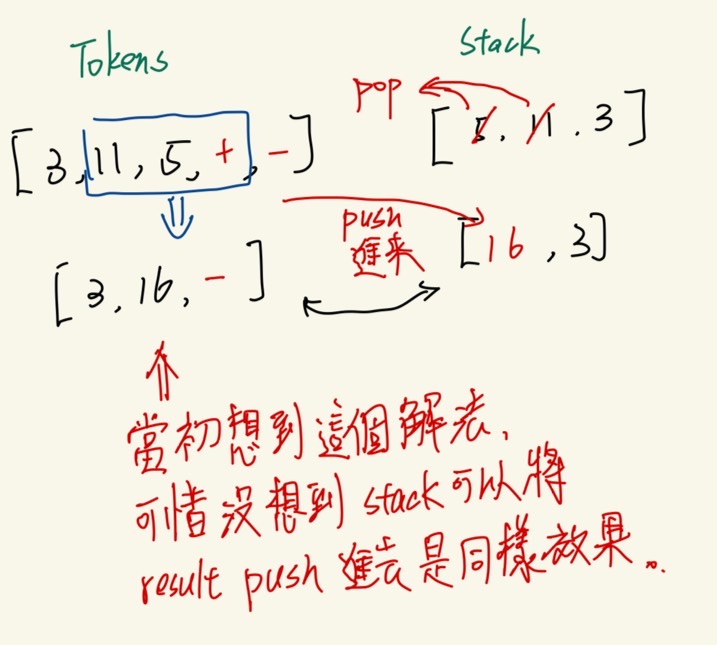 Tokens
Stack
pop
[3, 11, 5, +, -]
[5, 11, 3]
push
進來
[3, 16, -]
[16, 3]
當初想到這個解法,
可惜沒想到 stack 可以將
result push 進去是同樣效果..